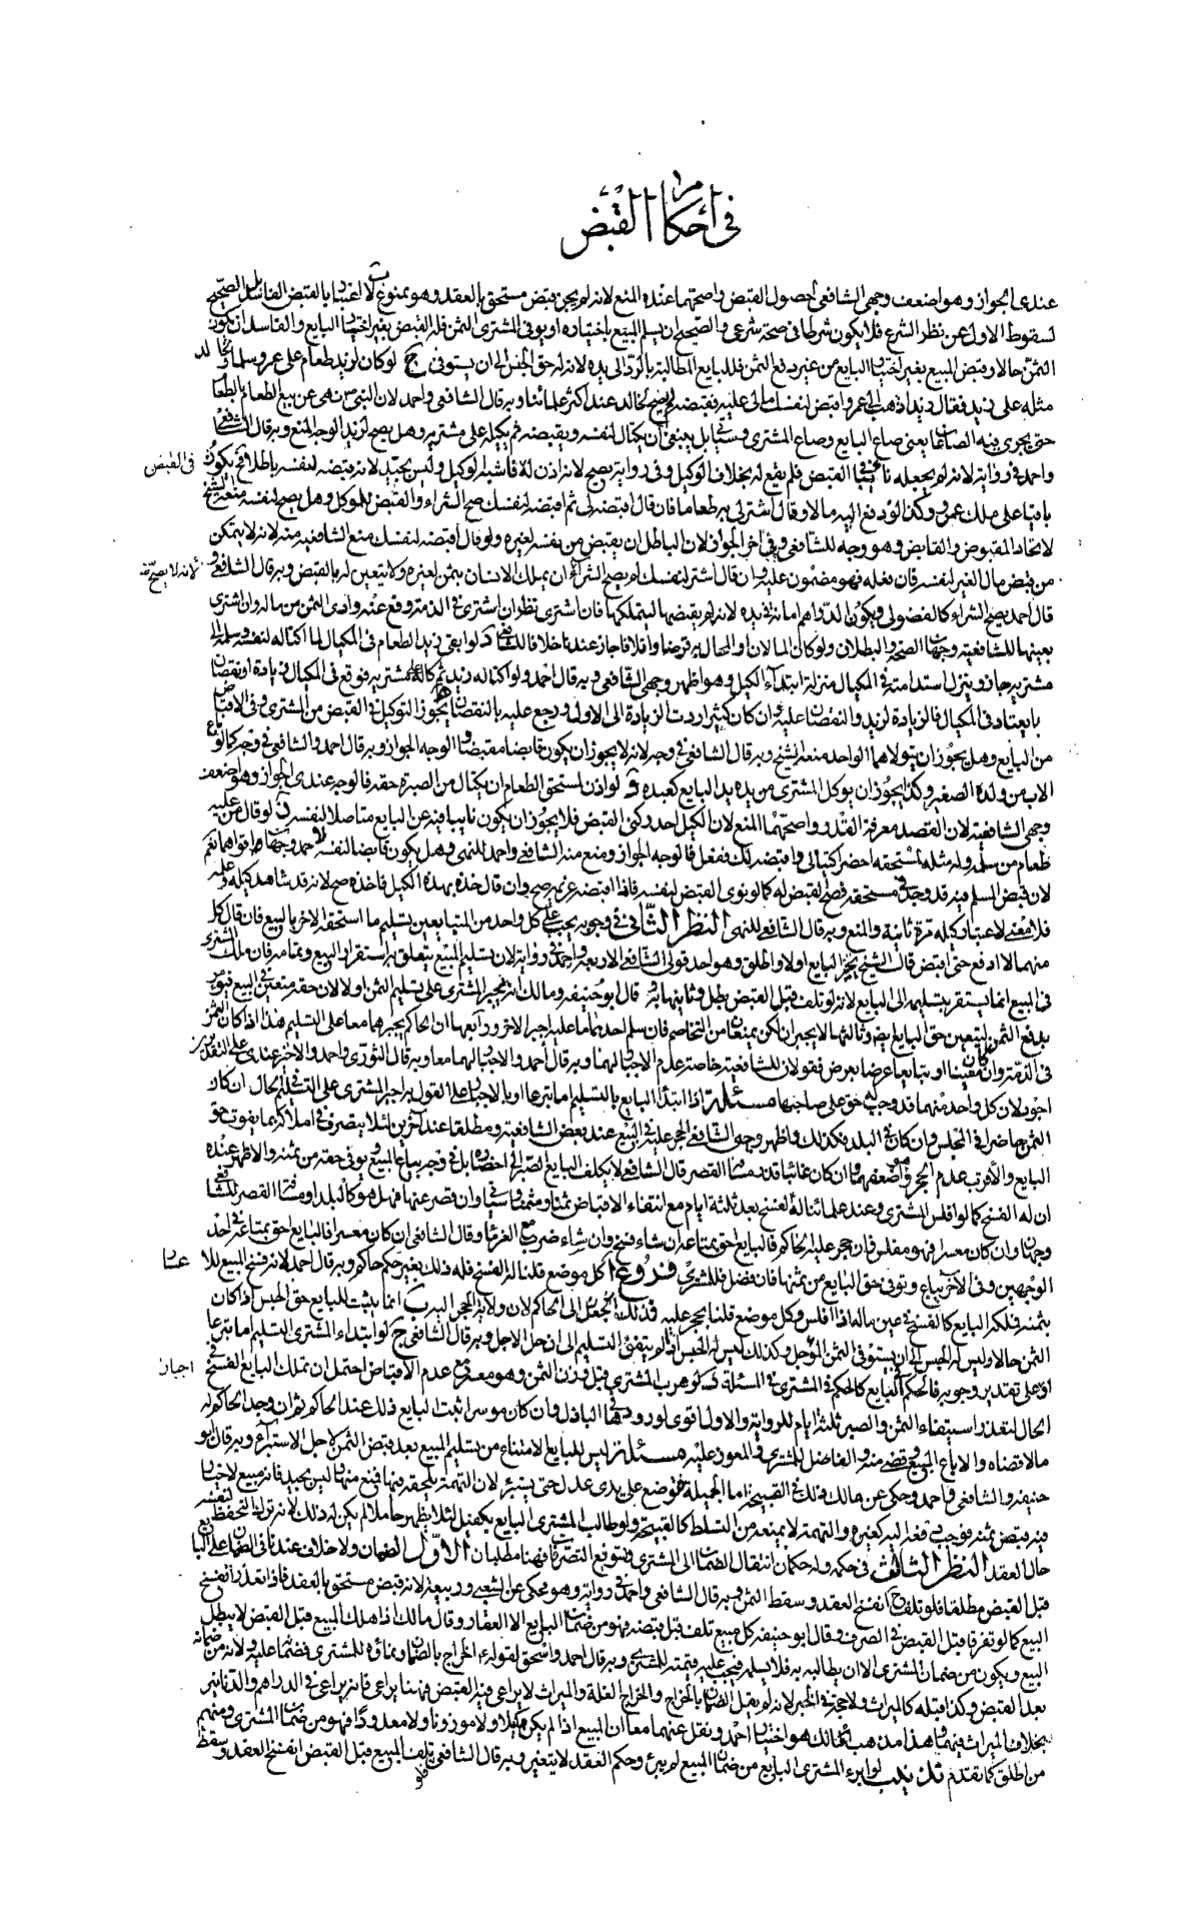 في أحكام القبض
عندي الجواز وهو اضعف وجهي الشافعي لحصول القبض واصحهما عنده المنع لانه لم يجز قبض مستحق بالعقد وهو ممنوع لا اعتبار بالقبض الفاسد بل الصحيح
لسقوط الاول عن نظر الشرع فلا يكون شرطا في صحة شرعي والصحيح ان يسلم المبيع باختياره او يوفي المشتري الثمن فله القبض بغير اختيار البايع والفاسد ان يكون
الثمن حالا وقبض المبيع بغير اختيار البايع من غير دفع الثمن فللبايع المطالبة بالرد الى يده لانه له حق الحبس الى ان يستوفي ج لو كان لزيد طعام على عمرو سلما ولخالد
مثله على زيد فقال زيد اذهب الى عمرو اقبض لنفسك مالي عليه فقبضه لم يصح لخالد عند اكثر علمائنا وبه قال الشافعي واحمد لان النبي نهى عن بيع الطعام بالطعام
حتى يجري فيه الصاعان يعني صاع البايع وصاع المشتري وسيأتي بل ينبغي ان يكتال لنفسه ويقبضه ثم يكيله على مشتريه وهل يصح لزيد الوجه المنع وبه قال الشافعي
واحمد في رواية لانه لم يجعله نائبا في القبض فلم يقع له بخلاف الوكيل وفي رواية يصح لانه اذن له فاشبه الوكيل وليس بجيد لانه يقبضه لنفسه باطلا فح يكون
في القبض
باقيا على ملك عمرو وكذا لو دفع اليه مالا وقال اشتر لي به طعاما فان قال اقبضه لي ثم اقبضه لنفسك صح الشراء والقبض للموكل وهل يصح لنفسه منعه الشيخ
لاتحاد المقبوض والقابض وهو وجه للشافعي وفي اخر الجواز لان الباطل ان يقبض من نفسه لغيره ولو قال اقبضه لنفسك منع الشافعية منه لانه لا يتمكن
من قبض مال الغير لنفسه فان فعله فهو مضمون عليه وان قال اشتر لنفسك لم يصح الشراء ان يملك الانسان بثمن لغيره ولا يتعين له بالقبض وبه قال الشافعي و
لانه لا يصح منه
قال احمد يصح الشراء كالفضولي ويكون الدراهم امانة في يده لانه لم يقبضها ليتملكها فان اشترى نظر ان اشترى في الذمة وقع عنه وادى الثمن من ماله وان اشترى
بعينها للشافعية وجهان الصحة والبطلان ولو كان المالان او المحال به قرضا واتلافا جاز عندنا خلافا للشافعي د لو ابقى زيد الطعام في المكيال لما اكتاله لنفسه وسلمه الى
مشتريه جاز وينزل استدامته في المكيال منزلة ابتداء الكيل وهو اظهر وجهي الشافعي وبه قال احمد ولو اكتاله زيد ثم كاله على مشتريه فوقع في المكيال زيادة او نقصان
بما يعتاد في المكيال فالزيادة لزيد والنقصان عليه وان كان كثيرا ردت الزيادة الى الاول ورجع عليه بالنقصان يجوز التوكيل في القبض من المشتري وفي الاقباض
من البايع وهل يجوز ان يتولاهما الواحد منعه الشيخ وبه قال الشافعي في وجه لانه لا يجوز ان يكون قابضا مقبضا والوجه الجواز وبه قال احمد والشافعي في وجه كما لو باع
الاب من ولده الصغير وكذا يجوز ان يوكل المشتري من يده يد البايع كعبده و لو اذن لمستحق الطعام ان يكتال من الصبرة حقه فالوجه عندي الجواز وهو اضعف
وجهي الشافعية لان القصد معرفة القدر واصحهما المنع لان الكيل احد ركني القبض فلا يجوز ان يكون نايبا فيه عن البايع متاصلا لنفسه ز لو قال من عليه
طعام من سلم وله مثله لمستحقه احضر اكتيالي لاقبضه لك ففعل فالوجه الجواز ومنع منه الشافعي واحمد للنهي وهل يكون قابضا لنفسه لاحمد وجهان اقواهما نعم
لان قبض المسلم فيه قد وجد في مستحقه فصح القبض له كما لو نوى القبض لنفسه فاذا اقبضه غريمه صح وان قال خذه بهذا الكيل فاخذه صح لانه قد شاهد كيله وعلمه
فلا معنى لاعتبار كيله مرة ثانية والمنع وبه قال الشافعي للنهي النظر الثاني في وجوبه يجب على كل واحد من المتبايعين تسليم ما استحقه الاخر بالبيع فان قال كل
منهما لا ادفع حتى اقبض قال الشيخ يجبر البايع اولا واطلق وهو احد قولي الشافعي الاربعة واحمد في رواية لان تسليم المبيع يتعلق به استقرار البيع وتمامه فان ملك المشتري
في المبيع انما يستقر بتسليمه الى البايع لانه لو تلف قبل القبض بطل وثانيها وبه قال ابو حنيفة ومالك انه يجبر المشتري على تسليم الثمن اولا لان حقه متعين في المبيع فيؤمر
بدفع الثمن ليتعين حق البايع ايضا وثالثها لا يجبران لكن يمنعان من التخاصم فان سلم احدهما ما عليه اجبر الاخر ورابعها ان الحاكم يجبرهما معا على التسليم هذا اذا كان الثمن
في الذمة وان كان معينا او تبايعا عرضا بعرض فقولان للشافعية خاصة عدم الاجبار لهما وبه قال احمد والاجبار لهما معا وبه قال الثوري واحمد والاخر عندي على التقديرين
اجود لان كل واحد منهما قد وجب له حق على صاحبها مسئلة اذا ابتدا البايع بالتسليم اما تبرعا او بالاجبار على القول به اجبر المشتري على التسليم في الحال ان كان
الثمن حاضرا في المجلس وان كان في البلد فكذلك واظهر وجهي الشافعي الحجر عليه في المبيع عند بعض الشافعية ومطلقا عند اخرين لئلا يتصرف في املاكه بما يفوت حق
البايع والاقرب عدم الحجر وهو اضعفهما وان كان غائبا قدر مسافة القصر قال الشافعي لا يكلف البايع الصبر الى احضاره بل في وجه يباع المبيع ويوفى حقه من ثمنه والاظهر عنده
ان له الفسخ كما لو افلس المشتري وعند علمائنا له الفسخ بعد ثلثة ايام مع انتفاء الاقباض ثمنا ومثمنا وسيأتي وان قصر عنها فهل هو كالبلد او مسافة القصر للشافعي
وجهان وان كان معسرا فهو مفلس فان حجر عليه الحاكم فالبايع احق بمتاعه ان شاء فسخ وان شاء ضرب مع الغرماء وقال الشافعي ان كان معسرا فالبايع احق بمتاعه في احد
الوجهين وفي الآخر يباع ويوفى حق البايع من ثمنها فان فضل فللمشتري فروع ا كل موضع قلنا له الفسخ فله ذلك بغير حكم حاكم وبه قال احمد لانه فسخ المبيع للاعسار
بثمنه فملكه البايع كالفسخ في عين ماله اذا افلس وكل موضع قلنا يحجر عليه فذلك يجعل الى الحاكم لان ولاية الحجر اليه ب انما يثبت للبايع حق الحبس اذا كان
الثمن حالا وليس له الحبس الى ان يستوفي الثمن المؤجل وكذلك ليس له الحبس اذا لم يتفق التسليم الى ان حل الاجل وبه قال الشافعي ج لو ابتداء المشتري بالتسليم اما تبرعا
او على تقدير وجوبه فالحكم في البايع كالحكم في المشتري في المسئلة د لو هرب المشتري قبل وزن الثمن وهو معسر مع عدم الاقباض احتمل ان يملك البايع الفسخ في
اجبار
الحال لتعذر استيفاء الثمن والصبر ثلثة ايام للرواية والاول اقوى لورودها في الباذل وان كان موسرا اثبت البايع ذلك عند الحاكم ثم ان وجد الحاكم له
مالا قضاه والا باع المبيع وقضى منه والفاضل للمشتري والمعوز عليه مسئلة ليس للبايع الامتناع من تسليم المبيع بعد قبض الثمن لاجل الاستبراء وبه قال ابو
حنيفة والشافعي واحمد وحكي عن مالك ذلك في القبيحة اما الجميلة فتوضع على يدي عدل حتى يستبرئ لان التهمة تلحقه فيها فمنع منها وليس بجيد فانه مبيع لا خيار
فيه قبض ثمنه فوجب دفعه اليه كغيره والتهمة لا تمنعه من التسلط كالقبيحة ولو طالب المشتري البايع بكفيل لئلا يظهر حاملا لم يكن له ذلك لانه ترك التحفظ لنفسه
حال العقد النظر الثالث في حكمه وله حكمان انتقال الضمان الى المشتري وتسويغ التصرفات فهنا مطلبان الاول الضمان ولا خلاف عندنا في ان الضمان على البايع
قبل القبض مطلقا فلو تلف ح انفسخ العقد وسقط الثمن وبه قال الشافعي واحمد في رواية وهو محكي عن الشعبي وربيعة لانه قبض مستحق بالعقد فاذا تعذر انفسخ
البيع كما لو تفرقا قبل القبض في الصرف وقال ابو حنيفة كل مبيع تلف قبل قبضه فهو من ضمان البايع الا العقار وقال مالك اذا هلك المبيع قبل القبض لا يبطل
البيع ويكون من ضمان المشتري الا ان يطالبه به فلا يسلمه فيجب عليه قيمته للمشتري وبه قال احمد واسحق لقوله الخراج بالضمان ونماؤه للمشتري فضمانه عليه ولانه من ضمانه
بعد القبض وكذا قبله كالميراث ولا حجة في الخبر لانه لم يقل الضمان بالخراج والخراج الغلة والميراث لا يراعى فيه القبض وهنا يراعى فانه يراعى في الدراهم والدنانير
بخلاف الميراث فيهما وهذا مذهب مالك هو اختيار احمد ونقل عنهما معا ان المبيع اذا لم يكن مكيلا ولا موزونا ولا معدودا فهو من ضمان المشتري ومنهم
من اطلق كما تقدم تذنيب لو ابرء المشتري البايع من ضمان المبيع لم يبرئ وحكم العقد لا يتغير وبه قال الشافعي تلف المبيع قبل القبض انفسخ العقد وسقط
فلو